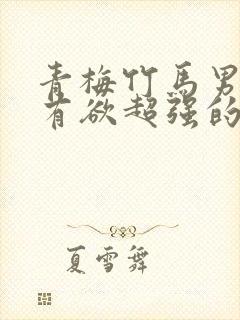 青梅竹马男
有欲超强的
夏雪舞